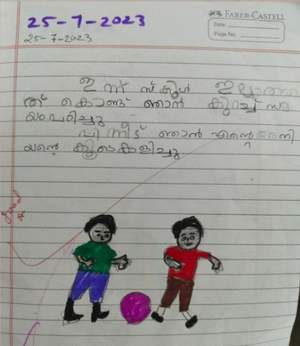 25-7-2023
25-7-2023
FABER-CASTELL
Date
Page No.
ഇന്ന് സ്കൂൾ ഇല്ലാത്ത
ത് കൊണ്ട് ഞാൻ കുറച്ച്
പിന്നീട് ഞാൻ എന്റെ അനി
യന്റെ കൂടെ കളിച്ചു